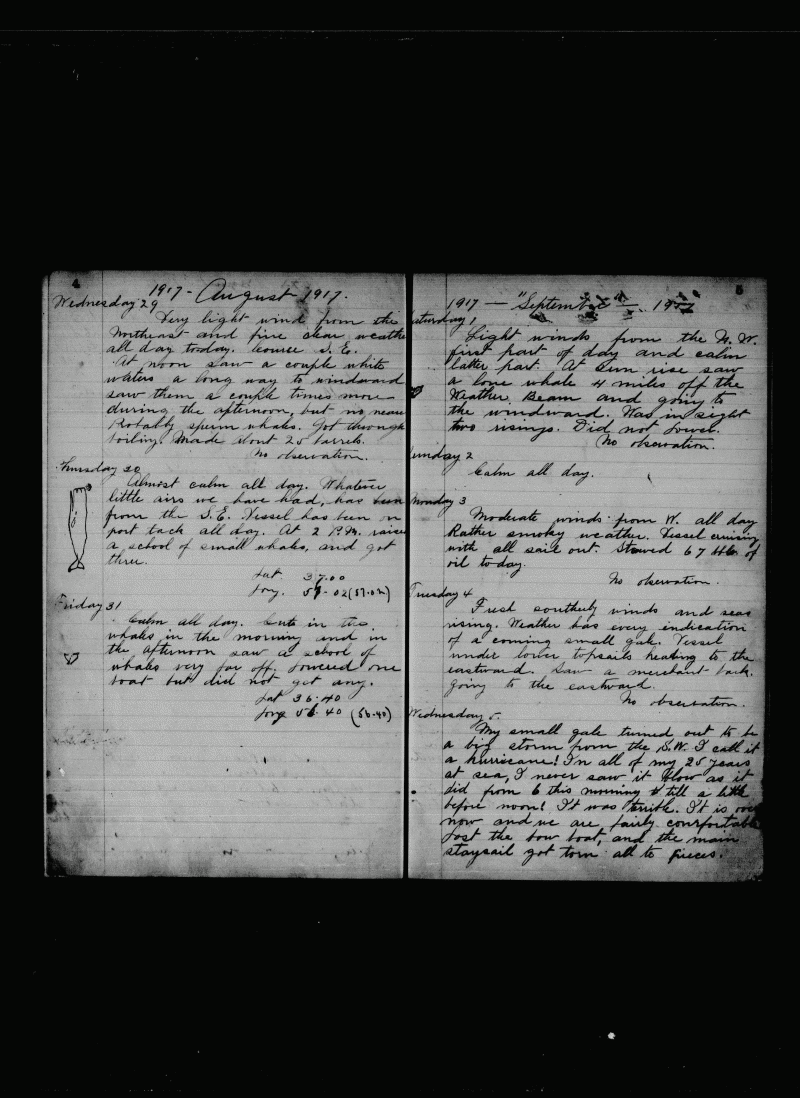 4
1917 - August 1917.
Wednesday 29
Very light wind from the
Northeast and fine clear weathe
all day today. Course S. E.
At noon saw a couple white
waters a long way to windward
saw them a couple times more
during the afternoon, but no near
Probably sperm whales. Got through
boiling. Made about 25 barrels.
No observation.
Thursday 30
Almost calm all day. Whatever
little airs we have had, has been
from the S.E. Vessel has been on
port tack all day. At 2 P.M. raise
a school of small whales, and got
three.
Lat 37.00
Long. 57-02 (57.02)
Friday 31
Calm all day. Cut in the
whales in the morning and in
the afternoon saw a school of
whales very far off. Lowered one
boat but did not get any.
Lat 36.40
Long 56 40 (56.40)
5
1917 — "September" —, 1917
aturday 1
Light winds from the N. W.
first part of day and calm
latter part. At Sun rise saw
a lone whale 4 miles off the
Weather Beam and going to
the windward. Was in sight
two risings. Did not Lower.
No observation.
unday 2
Calm all day.
Monday 3
Moderate winds from W. all day
Rather smoky weather. Vessel cruising
with all sail out. Stowed 67 bbls of
oil to day.
No observation.
Tuesday 4
Fresh southerly winds and seas
rising. Weather has every indication
of a coming small gale. Vessel
under lower topsails heading to the
eastward. Saw a merchant bark.
going to the eastward.
No observation.
Wednesday 5.
My small gale turned out to be
a big storm from the S.W. I call it
a hurricane! In all of my 25 years
at sea, I never saw it blow as it
did from 6 this morning to till a little
before noon! It was terrible. It is over
now and we are fairly comfortable
Lost the bow boat, and the main
staysail got torn all to pieces.